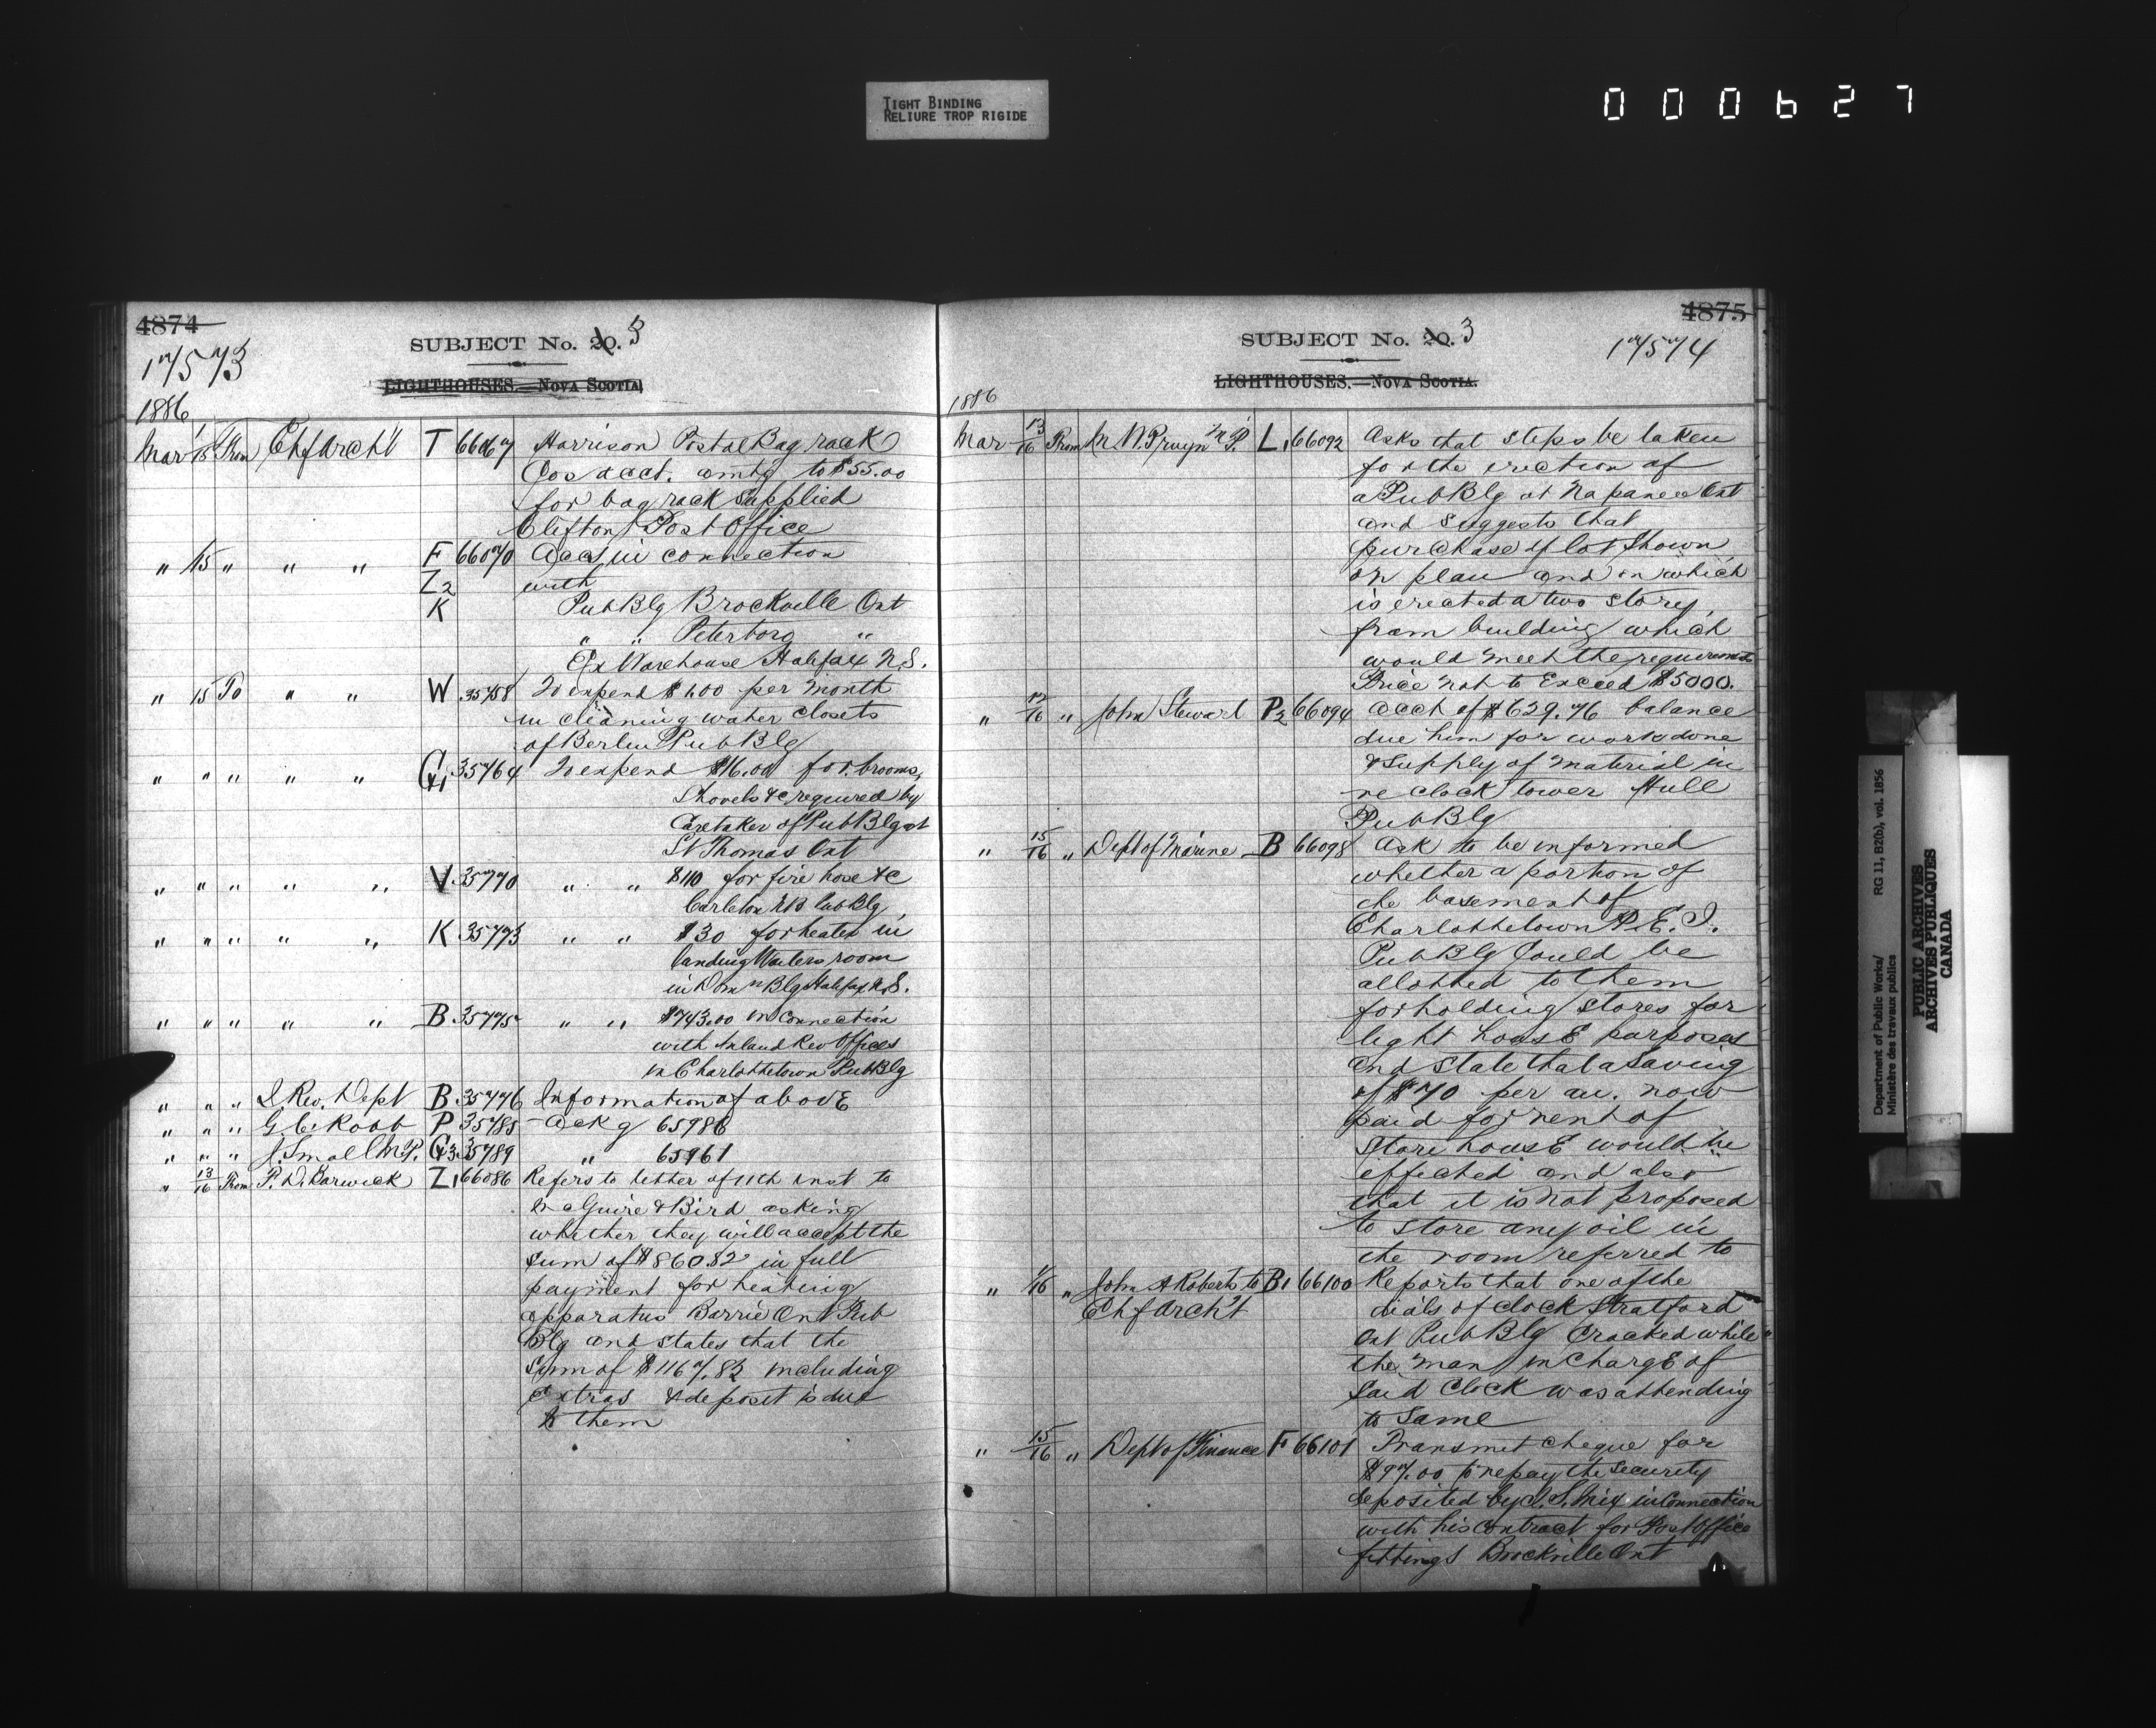 TIGHT BINDING
RELIURE TROP RIGIDE
000627
4874
17573
SUBJECT No. 20. 3
LIGHTHOUSES.—NOVA SCOTIA.
1886
Mar 15 From Chf Archt T 66067 Harrison Postal Bag rack
Co's acct. amtg to $55.00
for bag rack supplied
Clifton Post Office
" 15 " " " F 66070 Acct in connection
Z2 with
K Pub Blg Brockville Ont
" " Peterboro "
Ex Warehouse Halifax N.S.
" 15 To " " W 35758 To expend $1.00 per month
in cleaning water closets
of Berlin Pub Blg
" " " " " G1 35764 To expend $16.00 for brooms,
Shovels &c required by
Caretaker of Pub Blg at
St Thomas Ont
" " " " " V 35770 " " $110 for fire hose &c
Carleton NB Pub Blg
" " " " " K 35773 " " $30 for heater in
landing Waiters room
in Domn Blg Halifax N.S.
" " " " " B 35775 " " $743.00 in connection
with Inland Rev Offices
in Charlottetown Pub Blg
" " " I. Rev. Dept B 35776 Information of above
" " " G. C. Robb P 35785 Ackg 65986
" " " J. Small M.P. G3 35789 " 65961
" 13/16 From P. D. Barwick Z1 66086 Refers to letter of 11th inst to
McGuire & Bird asking
whether they will accept the
sum of $860.82 in full
payment for heating
apparatus Barrie Ont Pub
Blg and states that the
sum of $1167.82 including
extras & deposit is due
to them
4875
17574
SUBJECT No. 20. 3
LIGHTHOUSES.—NOVA SCOTIA.
1886
Mar 13/16 From M. W. Pruyn M.P. L1 66092 Asks that steps be taken
for the erection of
a Pub Blg at Napanee Ont
and suggests that
purchase of lot shown
on plan and on which
is erected a two story
fram building which
would meet the requirements
Price not to exceed $5000.
" 12/16 " John Stewart P2 66094 Acct of $629.76 balance
due him for work done
& supply of material in
re clock tower Hull
Pub Blg
" 15/16 " Dept of Marine B 66098 Ask to be informed
whether a portion of
the basement of
Charlottetown P.E.I.
Pub Blg could be
allotted to them
for holding stores for
light house purposes
and state that a saving
of $70 per an. now
paid for rent of
store house would be
effected and also
that it is not proposed
to store any oil in
the room referred to
" 1/16 " John A Roberts to B1 66100 Reports that one of the
Chf Archt dials of clock Stratford
Ont Pub Blg cracked while
the man in charge of
said clock was attending
to same
" 15/16 " Dept of Finance F 66101 Transmit cheque for
$97.00 to repay the security
deposited by J. S. Mix in connection
with his contract for Post Office
fittings Brockville Ont
Department of Public Works/ RG 11, B2(b), vol. 1856
Ministère des travaux publics
PUBLIC ARCHIVES
ARCHIVES PUBLIQUES
CANADA